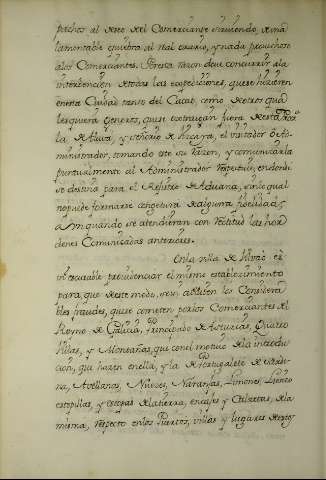 pechos al deseo del Comerciante haviendo, de una
lamentable quiebra al Real erario, y nada provechoso
alos Comerciantes. Poresta razon deve concurrir ala
intervencion detodas las expediciones, que se hizieren
enesta Ciudad tanto del Cacao, como de otros qua
lesquiera Generos, que se extraigan fuera
la, de Alava, y señorio de Vizcaya, el visitador ô Ad-
ministrador, tomando este su razon, y comunicarla
puntualmente al Administrador respective, en donde
se destina para el Registro de Aduana, sin lo qual
no puede formarse congetura de alguna
aun quando se atendieran con rectitud las hor
denes Comunicadas anteriores.
En la villa de Bilvao es
inexcusable providenciar el mismo establecimiento
para, que deste modo, se obvien los Considera
bles fraudes, que se cometen por los Comerciantes del
Reyno de Galicia, Principado de Asturias, Quatro
Villas, y Montañas, que con el motivo de la introduc
cion, que hazen en ella, y la de Portugalete de
na, Avellanas, Nuezes, Naranjas, Limones, Lienzo
estopillas, y estopas de la tierra, encajes y de la
misma, respecto en los Puertos, villas y lugares de estos